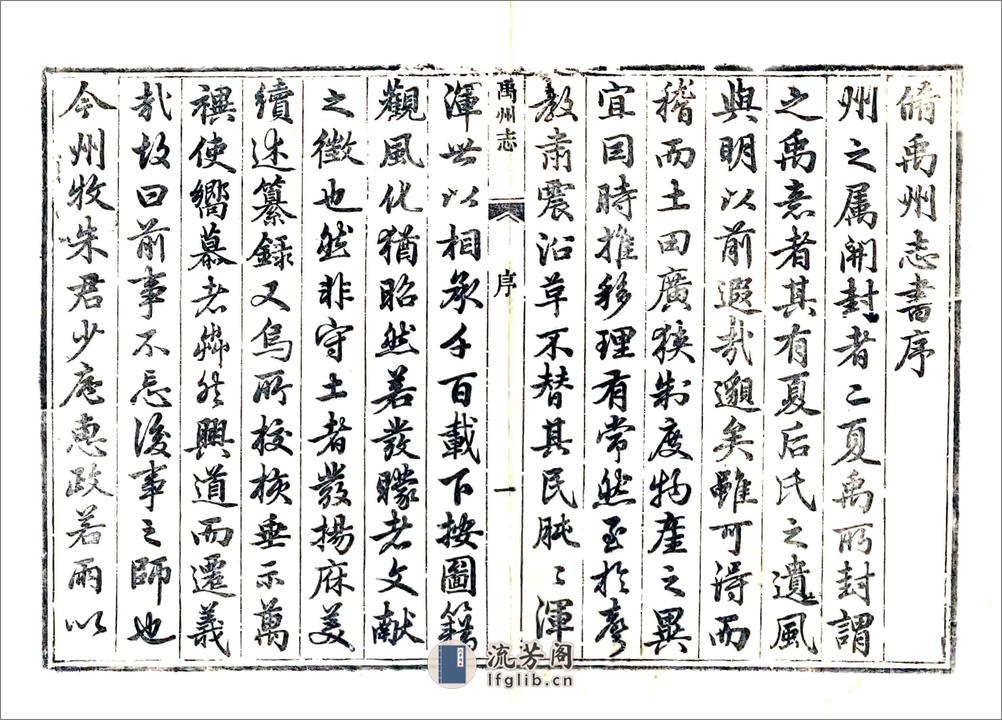 脩禹州志書序
州之属開封者二夏禹所封謂
之禹意者其有夏后氏之遺風
與明以前遐哉邈矣雖可得而
稽而土田廣狹制度物産之異
宜因時推移理有常然至於
教肅震沿革不替其民肫〻渾
禹州志
序
一
渾世以相承千百載下按圖籍
觀風化猶昭然若發矇者文献
之徵也然非守土者發揚庥美
續述纂錄又烏所校核垂示萬
禩使嚮慕者 然興道而遷義
哉故曰前事不忘後事之師也
今州牧朱君少庵惠政若雨以
流芳阁
lfglib.cn